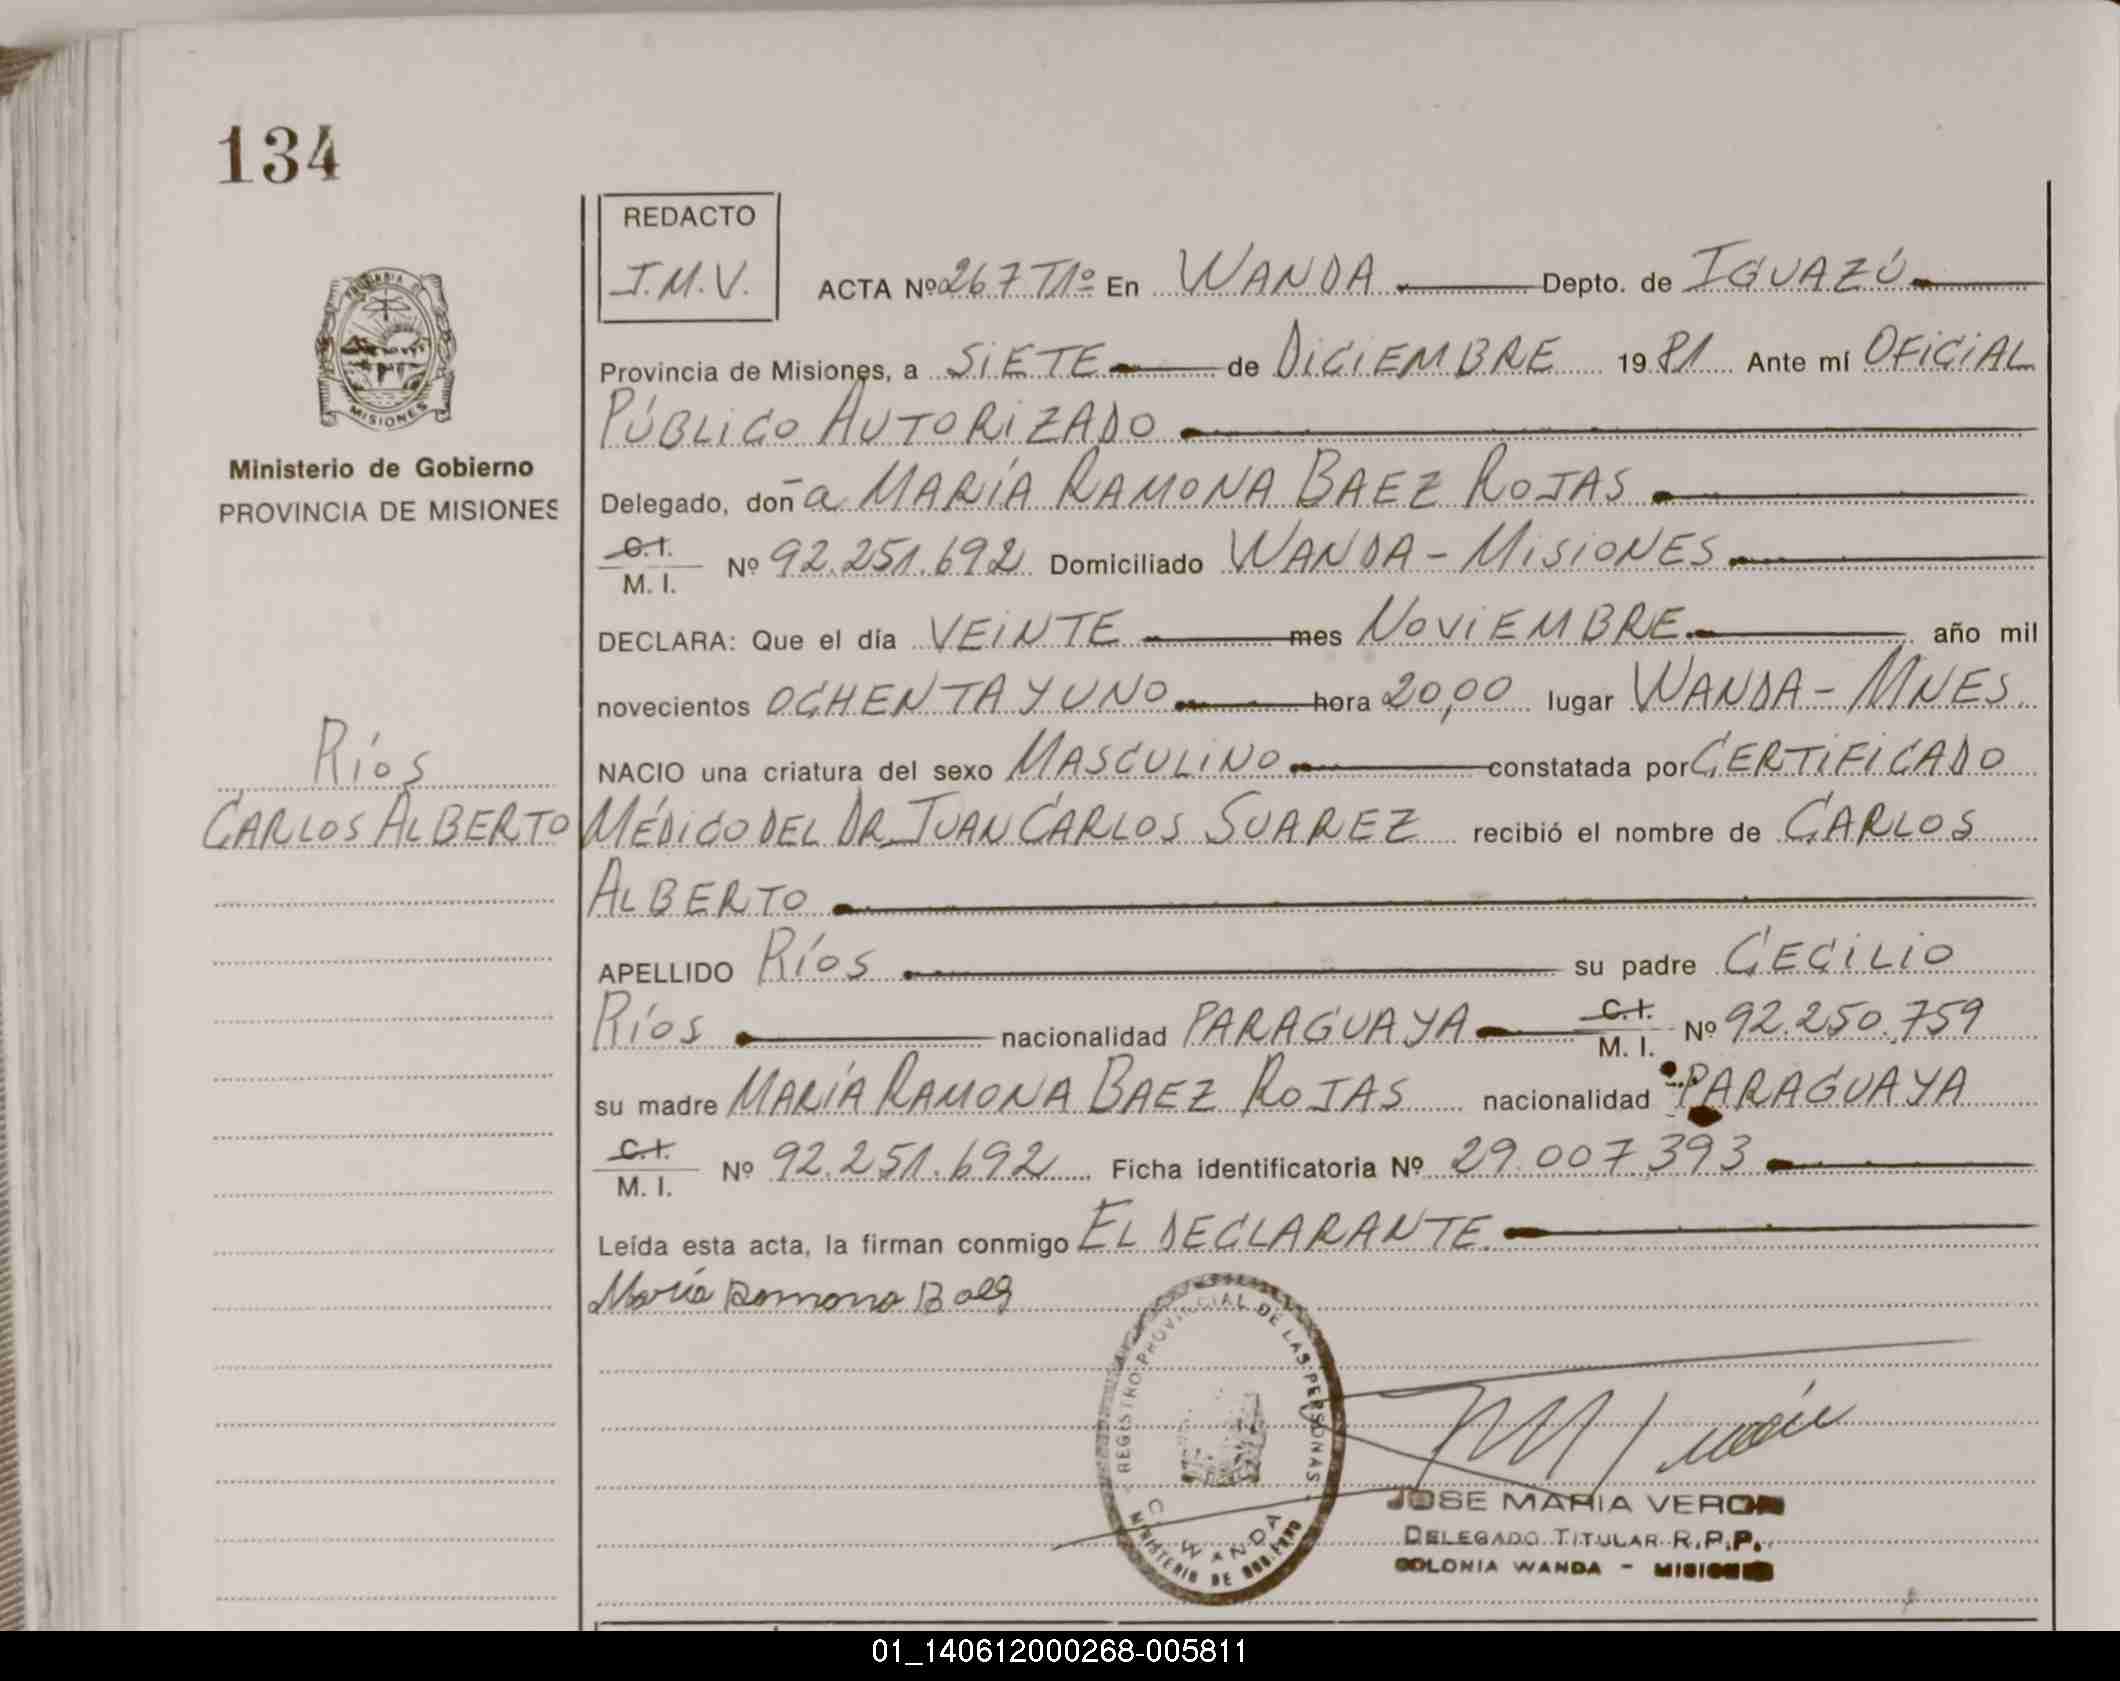 134
REDACTO
J.M.V.
ACTA Nº 267 T1º En WANDA Depto. de IGUAZÚ
PROVINCIA DE
MISIONES
Provincia de Misiones, a SIETE de DICIEMBRE 1981 Ante mí OFICIAL
PÚBLICO AUTORIZADO
Ministerio de Gobierno
PROVINCIA DE MISIONES
Delegado, doña MARÍA RAMONA BAEZ ROJAS
C.I.
M. I. Nº 92.251.692 Domiciliado WANDA - MISIONES
DECLARA: Que el día VEINTE mes NOVIEMBRE año mil
novecientos OCHENTA Y UNO hora 20,00 lugar WANDA - MNES
Ríos
NACIO una criatura del sexo MASCULINO constatada por CERTIFICADO
CARLOS ALBERTO
MÉDICO DEL DR. JUAN CARLOS SUAREZ recibió el nombre de CARLOS
ALBERTO
APELLIDO Ríos su padre CECILIO
Ríos nacionalidad PARAGUAYA C.I.
M. I. Nº 92.250.759
su madre MARÍA RAMONA BAEZ ROJAS nacionalidad PARAGUAYA
C.I.
M. I. Nº 92.251.692 Ficha identificatoria Nº 29.007.393
Leída esta acta, la firman conmigo EL DECLARANTE
María Ramona Baez
REGISTRO PROVINCIAL DE LAS PERSONAS
C. WANDA
MINISTERIO DE GOBIERNO
JOSE MARIA VERON
DELEGADO TITULAR R.P.P.
COLONIA WANDA - MISIONES
01_140612000268-005811